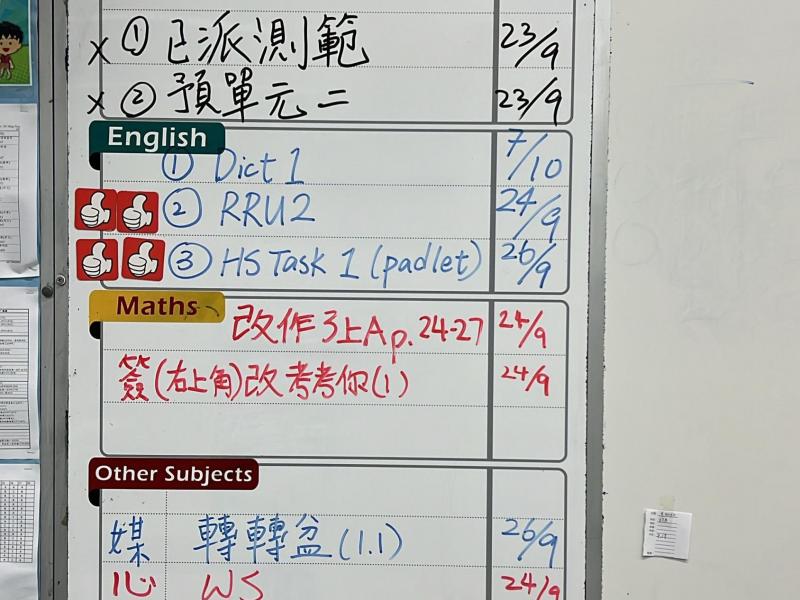 x ① 已派測範 23/9
x ② 預單元二 23/9
English
① Dict 1 7/10
② RRU2 24/9
③ HS Task 1 (padlet) 26/9
Maths
改作3上A p.24-27 24/9
簽(右上角)改考考你(1) 24/9
Other Subjects
媒 轉轉盆(1.1) 26/9
心 WS 24/9